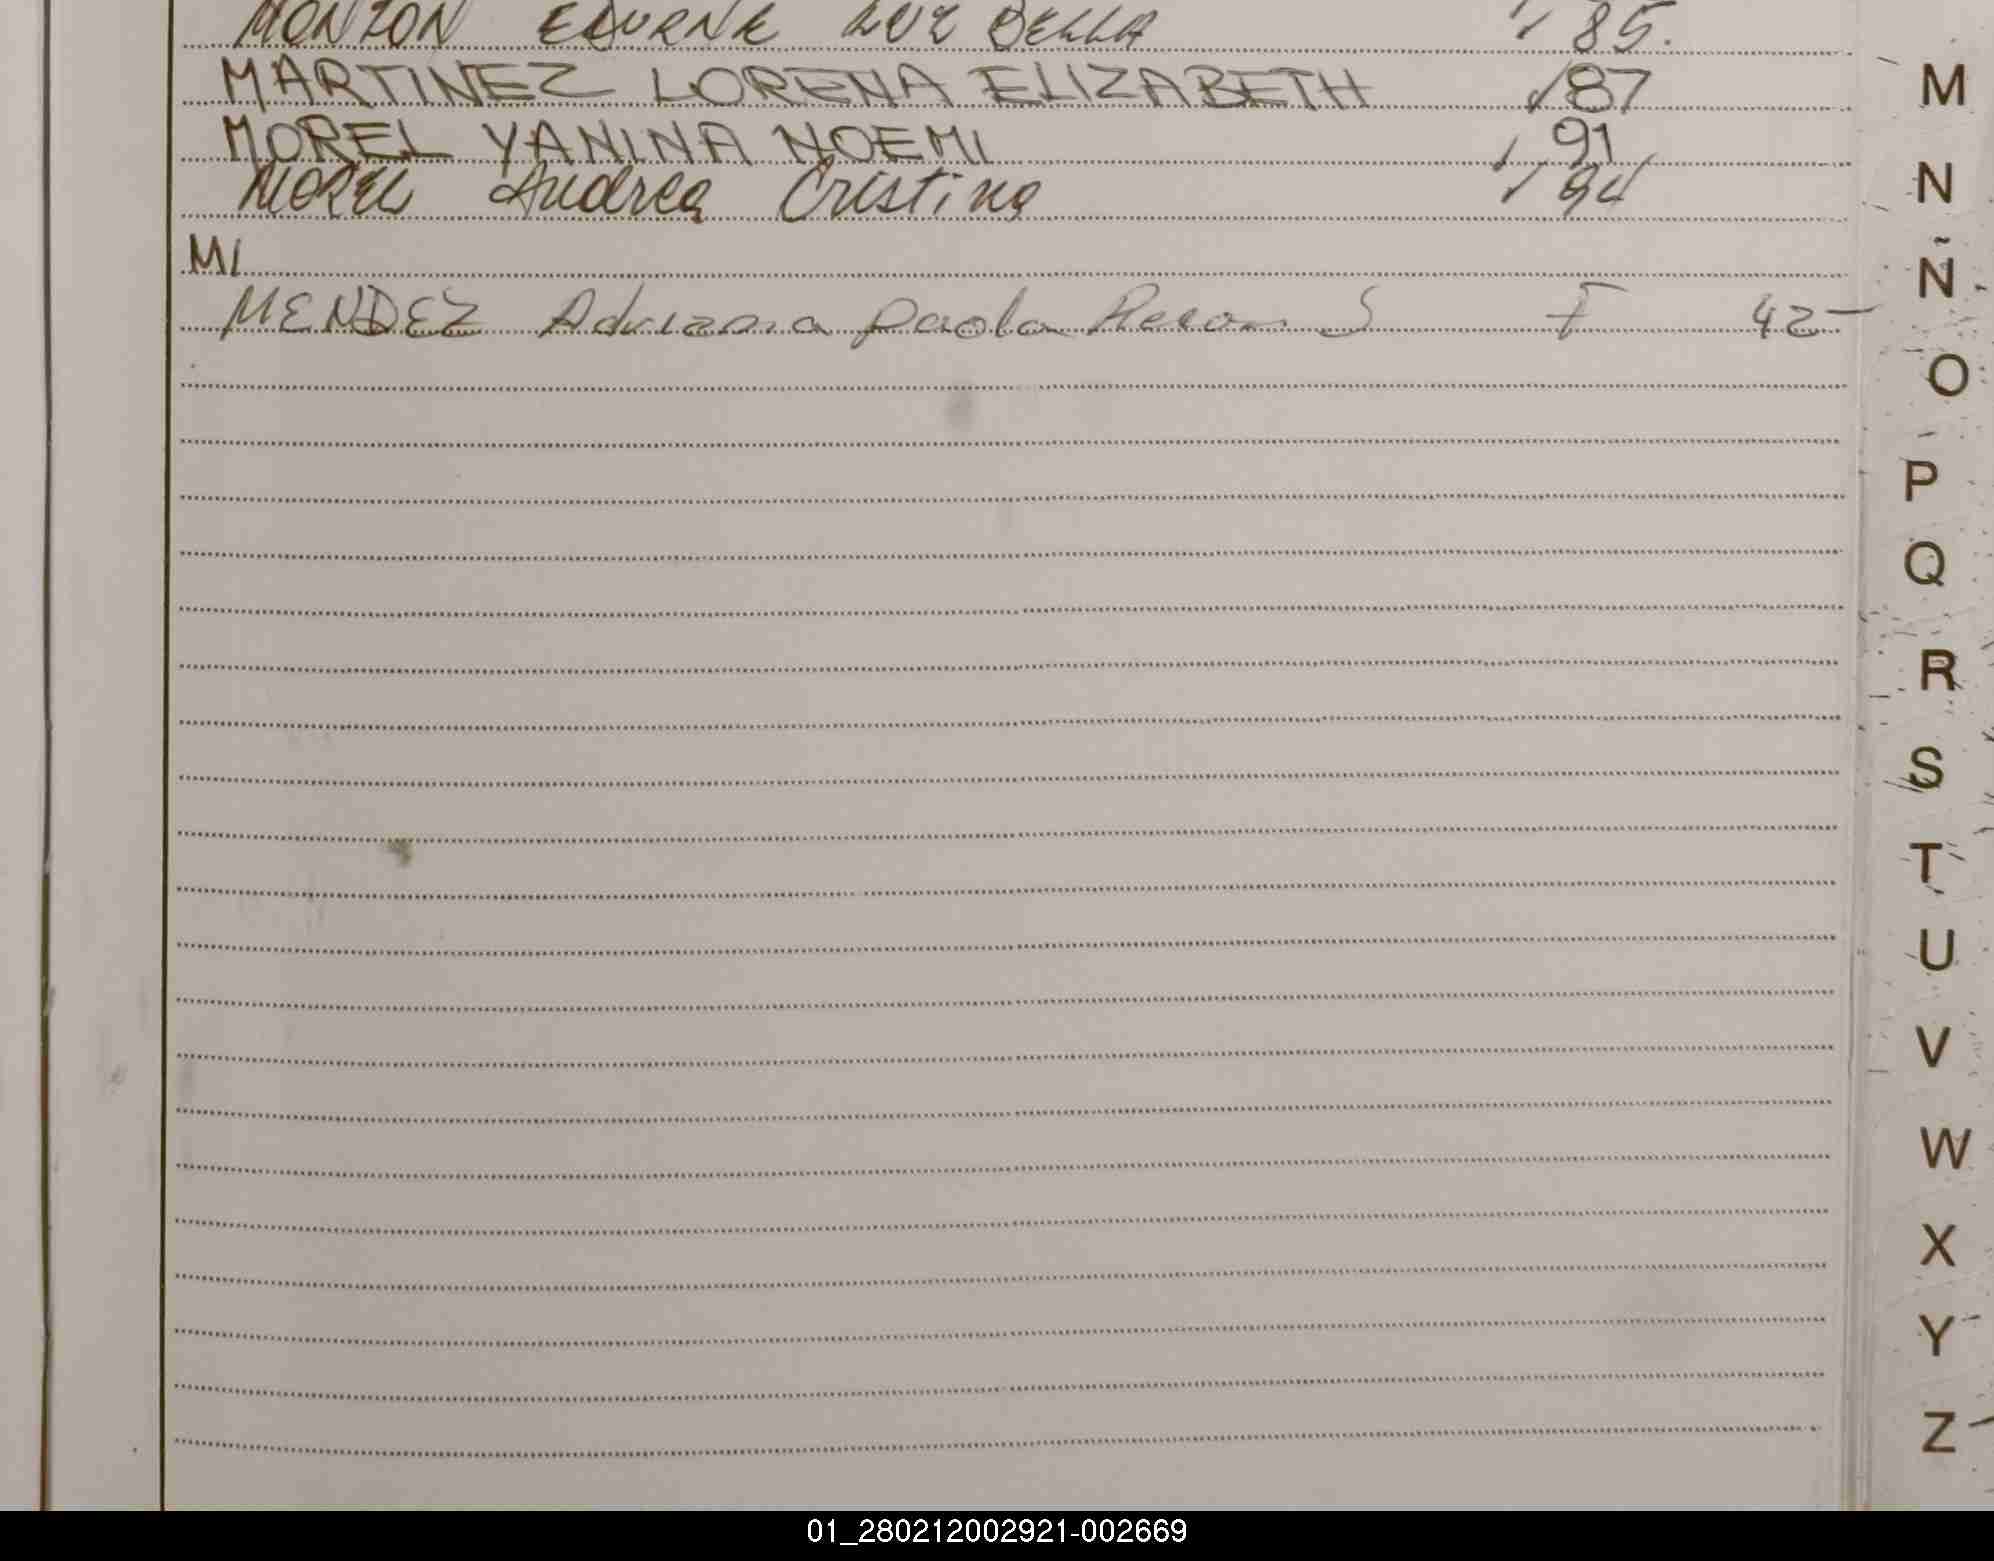 MONZON EDURNE LUZ BELLA ✓ 85.
MARTINEZ LORENA ELIZABETH ✓ 87
MOREL YANINA NOEMI ✓ 91
MOREL Andrea Cristina ✓ 94
MI
MENDEZ Adriana Paola S F 42
M
N
Ñ
O
P
Q
R
S
T
U
V
W
X
Y
Z
01_280212002921-002669